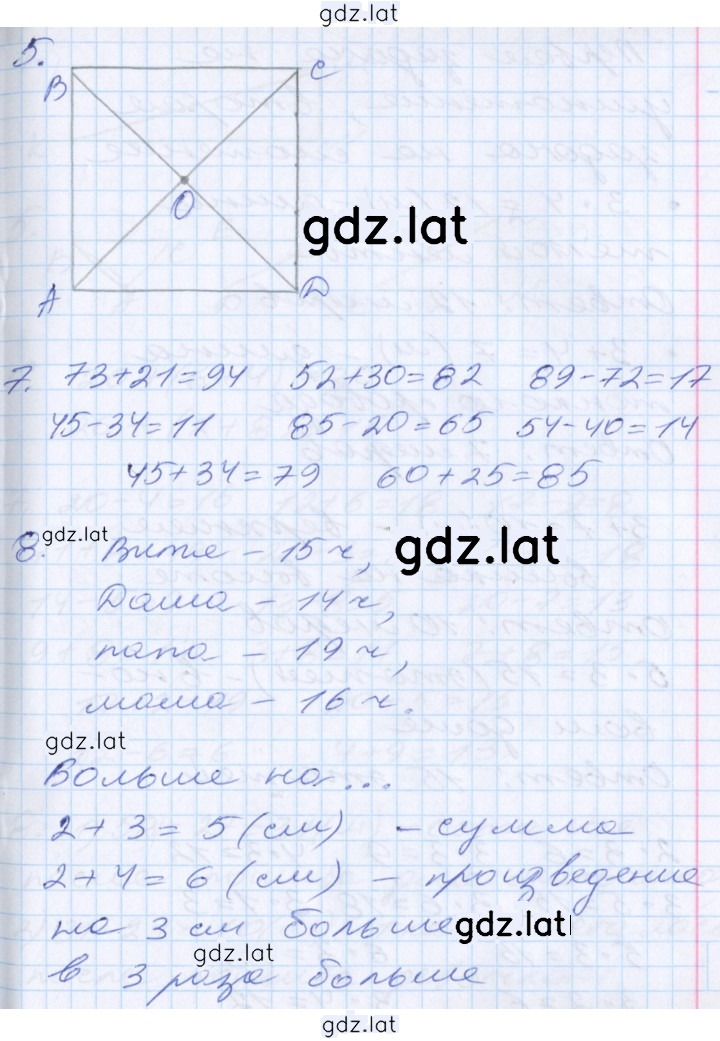 gdz.lat
5.
B C
O
gdz.lat
A D
7. 73+21=94 52+30=82 89-72=17
45-34=11 85-20=65 54-40=14
45+34=79 60+25=85
gdz.lat
8. Витя - 15 ч, gdz.lat
Даша - 14 ч,
папа - 19 ч,
мама - 16 ч.
gdz.lat
Больше на...
2+3=5(см) - сумма
2+4=6(см) - произведение
на 3 см больше gdz.lat
gdz.lat
в 3 раза больше
gdz.lat